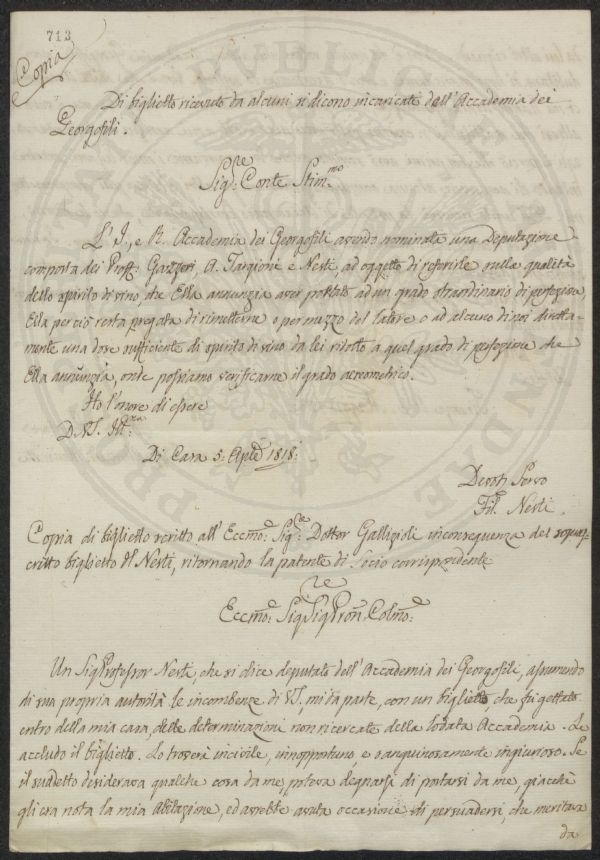 713
Copia
Di biglietto ricevuto da alcuni si dicono incaricati dell'Accademia dei
Georgofili.
Sig:re Conte Stim:mo
L'I., e R. Accademia dei Georgofili avendo nominata una Deputazione
composta dei Proff: Gazzeri, A. Targioni e Nesti, ad oggetto di referirle sulla qualità
dello spirito di vino che Ella annunzia aver portato ad un grado straordinario di perfezione,
Ella perciò resta pregata di rimetterne o per mezzo del latore o ad alcuno di noi diretta-
mente una dose sufficiente di spirito di vino da lei ridotto a quel grado di perfezione che
Ella annunzia, onde possiamo verificarne il grado areometrico.
Ho l'onore di essere
D. VS. Ill:ma
Di Casa 5. Aple 1818.
Devot: Servo
Fil. Nesti.
Copia di biglietto scritto all'Eccmo: Sig:re Dottor Gallizioli in conseguenza del soprasc-
critto biglietto del Nesti, ritornando la patente di Socio corrispondente
Eccmo: Sig:re Sig Pron Colmo:
Un Sig Professor Nesti, che si dice deputato dell'Accademia dei Georgofili, assumendo
di sua propria autorità le incombenze di VS, mi fa parte, con un biglietto che fu gettato
entro della mia casa, delle determinazioni non ricercate della lodata Accademia. Le
accludo il biglietto. Lo troverà incivile, inopportuno, e sanguinosamente ingiurioso. Se
il suddetto desiderava qualche cosa da me poteva degnarsi di portarsi da me, giacchè
gli era nota la mia abitazione, ed avrebbe avuta occasione di persuadersi, che meritava
da